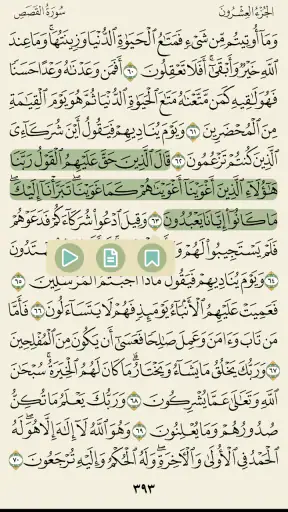 الجزء العشرون
سورة القصص
وَمَآ أُوتِيتُم مِّن شَىْءٍ فَمَتَٰعُ ٱلْحَيَوٰةِ ٱلدُّنْيَا وَزِينَتُهَا ۚ وَمَا عِندَ
ٱللَّهِ خَيْرٌ وَأَبْقَىٰٓ ۚ أَفَلَا تَعْقِلُونَ ٦٠ أَفَمَن وَعَدْنَٰهُ وَعْدًا حَسَنًا
فَهُوَ لَٰقِيهِ كَمَن مَّتَّعْنَٰهُ مَتَٰعَ ٱلْحَيَوٰةِ ٱلدُّنْيَا ثُمَّ هُوَ يَوْمَ ٱلْقِيَٰمَةِ
مِنَ ٱلْمُحْضَرِينَ ٦١ وَيَوْمَ يُنَادِيهِمْ فَيَقُولُ أَيْنَ شُرَكَآءِىَ
ٱلَّذِينَ كُنتُمْ تَزْعُمُونَ ٦٢ قَالَ ٱلَّذِينَ حَقَّ عَلَيْهِمُ ٱلْقَوْلُ رَبَّنَا
هَٰٓؤُلَآءِ ٱلَّذِينَ أَغْوَيْنَآ أَغْوَيْنَٰهُمْ كَمَا غَوَيْنَا ۖ تَبَرَّأْنَآ إِلَيْكَ ۖ
مَا كَانُوٓا۟ إِيَّانَا يَعْبُدُونَ ٦٣ وَقِيلَ ٱدْعُوا۟ شُرَكَآءَكُمْ فَدَعَوْهُمْ
فَلَمْ يَسْتَجِيبُوا۟ لَهُمْ
٦٤ وَيَوْمَ يُنَادِيهِمْ فَيَقُولُ مَاذَآ أَجَبْتُمُ ٱلْمُرْسَلِينَ ٦٥
فَعَمِيَتْ عَلَيْهِمُ ٱلْأَنۢبَآءُ يَوْمَئِذٍ فَهُمْ لَا يَتَسَآءَلُونَ ٦٦ فَأَمَّا
مَن تَابَ وَءَامَنَ وَعَمِلَ صَٰلِحًا فَعَسَىٰٓ أَن يَكُونَ مِنَ ٱلْمُفْلِحِينَ
٦٧ وَرَبُّكَ يَخْلُقُ مَا يَشَآءُ وَيَخْتَارُ ۗ مَا كَانَ لَهُمُ ٱلْخِيَرَةُ ۚ سُبْحَٰنَ
ٱللَّهِ وَتَعَٰلَىٰ عَمَّا يُشْرِكُونَ ٦٨ وَرَبُّكَ يَعْلَمُ مَا تُكِنُّ
صُدُورُهُمْ وَمَا يُعْلِنُونَ ٦٩ وَهُوَ ٱللَّهُ لَآ إِلَٰهَ إِلَّا هُوَ ۖ لَهُ
ٱلْحَمْدُ فِى ٱلْأُولَىٰ وَٱلْءَاخِرَةِ ۖ وَلَهُ ٱلْحُكْمُ وَإِلَيْهِ تُرْجَعُونَ ٧٠
٣٩٣